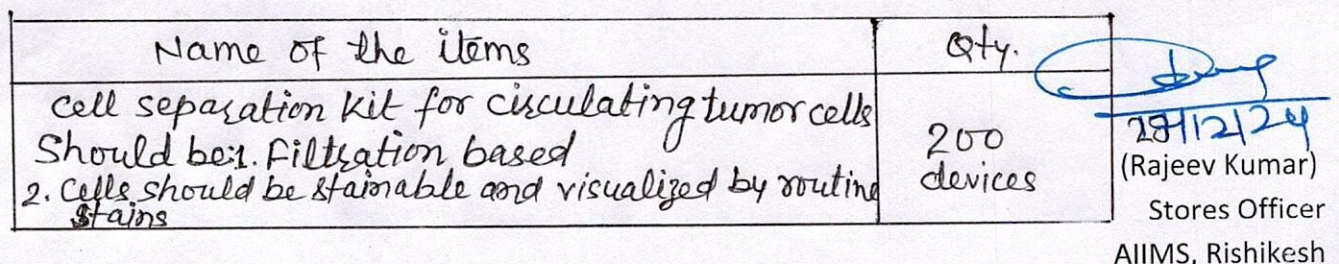 Name of the items
Qty.
cell separation kit for circulating tumor cells
Should be:1. Filtration based
2. Cells should be stainable and visualized by routine
stains
200
devices
(Rajeev Kumar)
Stores Officer
AIIMS, Rishikesh